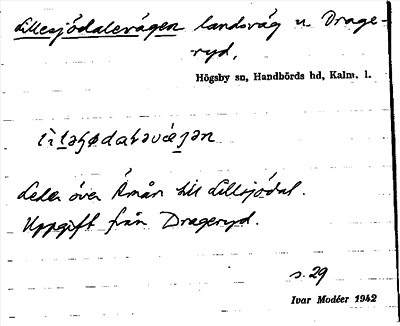 Lillesjödalevägen landsväg u. Drage-
ryd,
Högsby sn, Handbörds hd, Kalm. l.
Leder över Åmån till Lillsjödal.
Uppgift från Drageryd.
s. 29
Ivar Modéer 1942